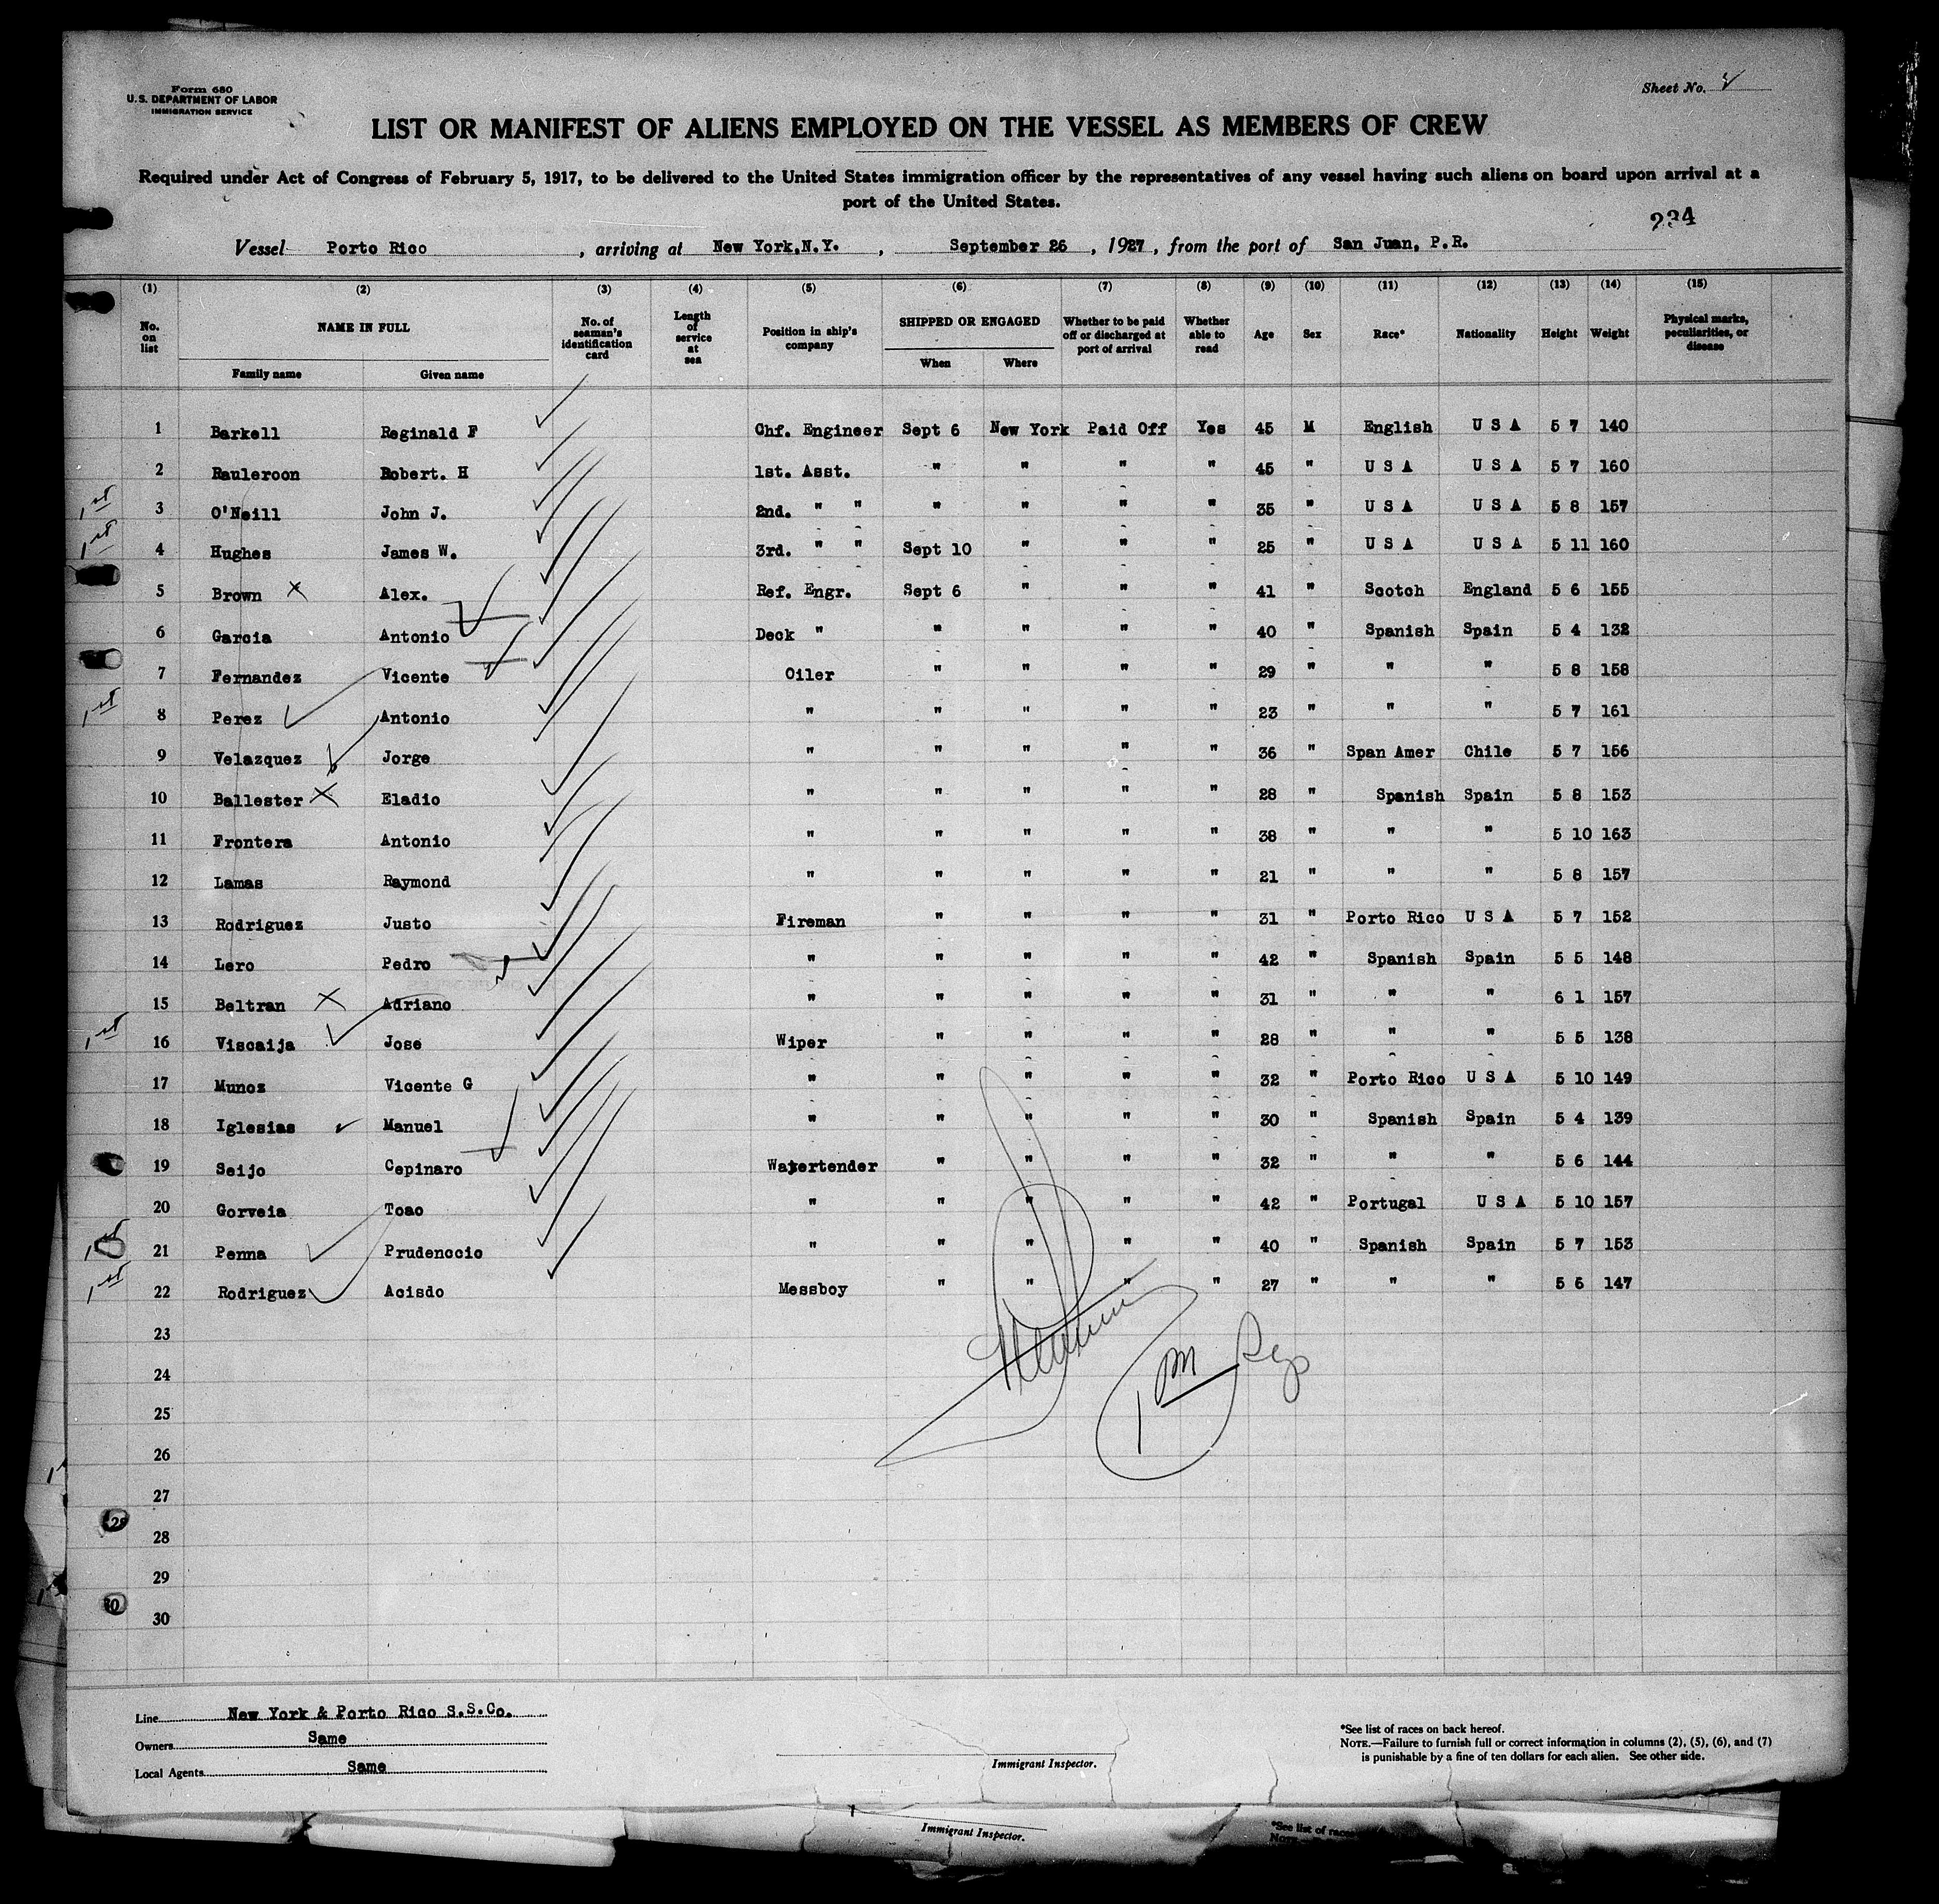 Form 680
U.S. DEPARTMENT OF LABOR
IMMIGRATION SERVICE
Sheet No.
LIST OR MANIFEST OF ALIENS EMPLOYED ON THE VESSEL AS MEMBERS OF CREW
Required under Act of Congress of February 5, 1917, to be delivered to the United States immigration officer by the representatives of any vessel having such aliens on board upon arrival at a
port of the United States.
234
Vessel Porto Rico, arriving at New York,N.Y., September 26, 1927, from the port of San Juan, P.R.
(1) (2) (3) (4) (5) (6) (7) (8) (9) (10) (11) (12) (13) (14) (15)
No. on list NAME IN FULL Family name Given name No. of seaman's identification card Length of service at sea Position in ship's company SHIPPED OR ENGAGED When Where Whether to be paid off or discharged at port of arrival Whether able to read Age Sex Race* Nationality Height Weight Physical marks, peculiarities, or disease
1 Barkell Reginald F Chf. Engineer Sept 6 New York Paid Off Yes 45 M English U S A 5 7 140
2 Rauleroon Robert. H 1st. Asst. " " " " 45 " U S A U S A 5 7 160
1st 3 O'Neill John J. 2nd. " " " " " " 35 " U S A U S A 5 8 157
1st 4 Hughes James W. 3rd. " " Sept 10 " " " 25 " U S A U S A 5 11 160
5 Brown x Alex. Ref. Engr. Sept 6 " " " 41 " Scotch England 5 6 155
6 Garcia Antonio Deck " " " " " 40 " Spanish Spain 5 4 132
7 Fernandez Vicente Oiler " " " " 29 " " " 5 8 158
1st 8 Perez Antonio " " " " " 23 " " " 5 7 161
9 Velazquez Jorge " " " " " 36 " Span Amer Chile 5 7 156
10 Ballester x Eladio " " " " " 28 " Spanish Spain 5 8 153
11 Frontera Antonio " " " " " 38 " " " 5 10 163
12 Lamas Raymond " " " " " 21 " " " 5 8 157
13 Rodriguez Justo Fireman " " " " 31 " Porto Rico U S A 5 7 152
14 Lero Pedro " " " " " 42 " Spanish Spain 5 5 148
15 Beltran x Adriano " " " " " 31 " " " 6 1 157
1st 16 Viscaija Jose Wiper " " " " 28 " " " 5 5 138
17 Munoz Vicente G " " " " " 32 " Porto Rico U S A 5 10 149
18 Iglesias Manuel " " " " " 30 " Spanish Spain 5 4 139
19 Seijo Cepinaro Watertender " " " " 32 " " " 5 6 144
20 Gorveia Toao " " " " " 42 " Portugal U S A 5 10 157
1st 21 Penna Prudenccio " " " " " 40 " Spanish Spain 5 7 153
1st 22 Rodriguez Acisdo Messboy " " " " 27 " " " 5 6 147
23
24
25
26
27
28
29
30
Line New York & Porto Rico S.S.Co.
Owners Same
Local Agents Same
Immigrant Inspector.
*See list of races on back hereof.
NOTE.—Failure to furnish full or correct information in columns (2), (5), (6), and (7)
is punishable by a fine of ten dollars for each alien. See other side.
Immigrant Inspector.
*See list of races